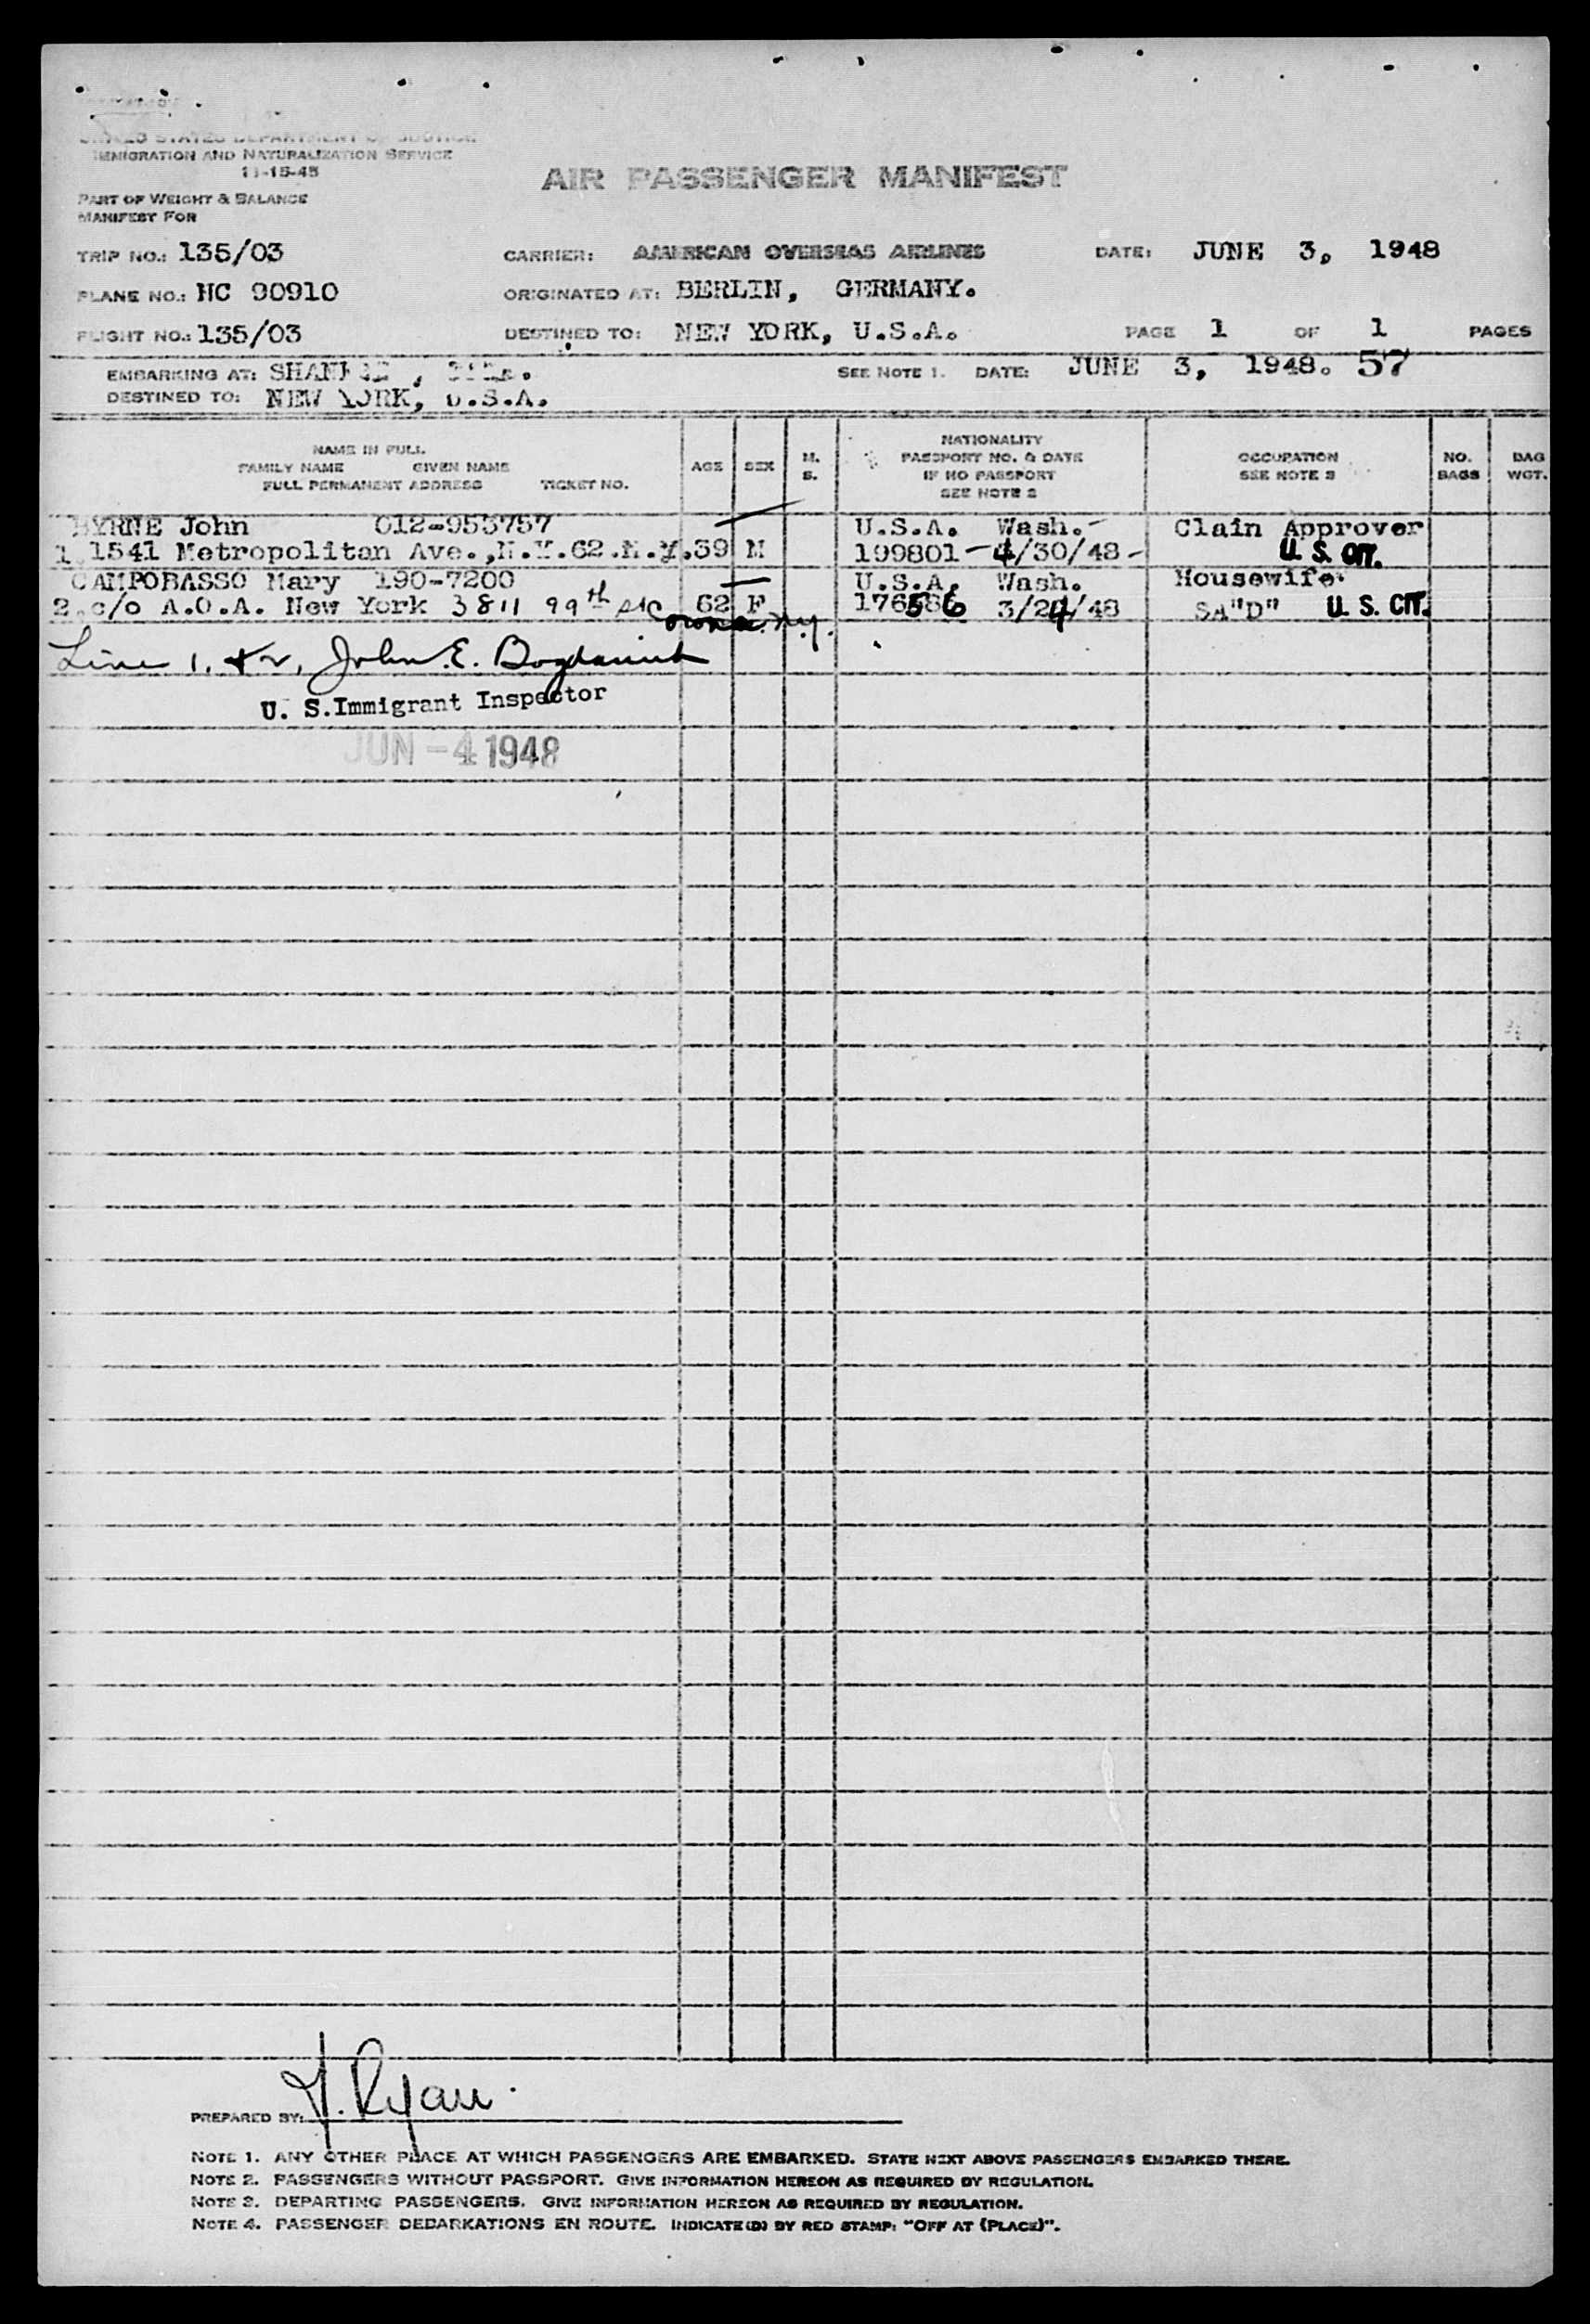 UNITED STATES DEPARTMENT OF JUSTICE
IMMIGRATION AND NATURALIZATION SERVICE
11-15-45
AIR PASSENGER MANIFEST
PART OF WEIGHT & BALANCE
MANIFEST FOR
TRIP NO.: 135/03 CARRIER: AMERICAN OVERSEAS AIRLINES DATE: JUNE 3, 1948
PLANE NO.: NC 90910 ORIGINATED AT: BERLIN, GERMANY.
FLIGHT NO.: 135/03 DESTINED TO: NEW YORK, U.S.A. PAGE 1 OF 1 PAGES
EMBARKING AT: SEE NOTE 1. DATE: JUNE 3, 1948. 57
DESTINED TO: NEW YORK, U.S.A.
NAME IN FULL
FAMILY NAME GIVEN NAME
FULL PERMANENT ADDRESS TICKET NO.
AGE SEX M. S.
NATIONALITY
PASSPORT NO. & DATE
IF NO PASSPORT
SEE NOTE 2
OCCUPATION
SEE NOTE 3
NO. BAGS
BAG WGT.
BYRNE John 012-953757 U.S.A. Wash. Clain Approver
1. 1541 Metropolitan Ave.,N.Y.62.N.Y. 39 M 199801 - 4/30/48 - U. S. CIT.
CAMPOBASSO Mary 190-7200 U.S.A. Wash. Housewife
2. c/o A.O.A. New York 3811 99th St Corona. N.Y. 62 F 176586 3/24/48 SA"D" U. S. CIT.
Line 1. & 2, John E.
U. S.Immigrant Inspector
JUN -4 1948
PREPARED BY: J. Ryan.
NOTE 1. ANY OTHER PLACE AT WHICH PASSENGERS ARE EMBARKED. STATE NEXT ABOVE PASSENGERS EMBARKED THERE.
NOTE 2. PASSENGERS WITHOUT PASSPORT. GIVE INFORMATION HEREON AS REQUIRED BY REGULATION.
NOTE 3. DEPARTING PASSENGERS. GIVE INFORMATION HEREON AS REQUIRED BY REGULATION.
NOTE 4. PASSENGER DEBARKATIONS EN ROUTE. INDICATE(D) BY RED STAMP: "OFF AT (PLACE)".